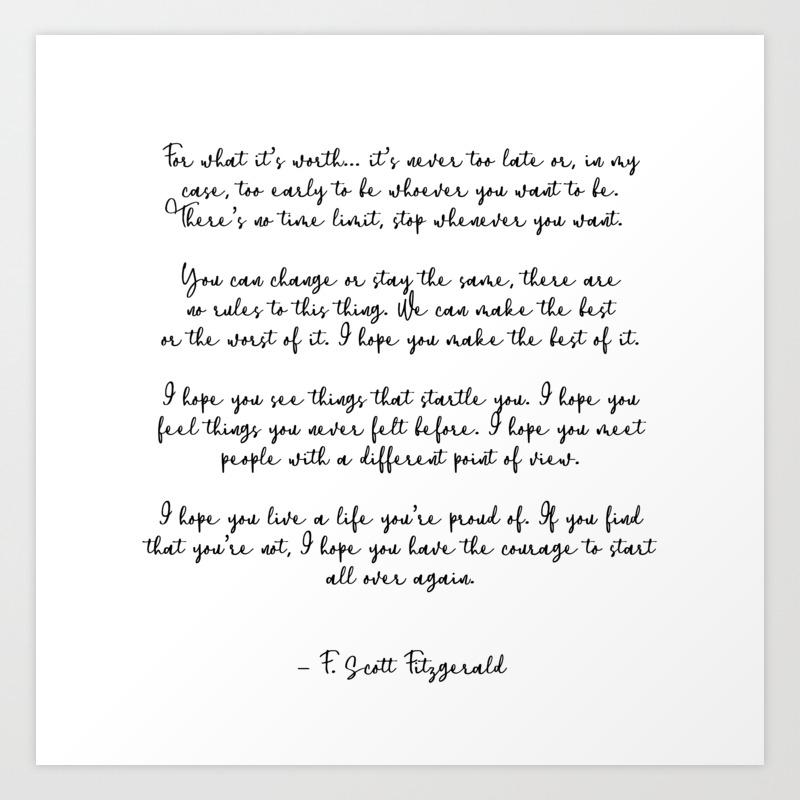 For what it's worth... it's never too late or, in my
case, too early to be whoever you want to be.
There's no time limit, stop whenever you want.
You can change or stay the same, there are
no rules to this thing. We can make the best
or the worst of it. I hope you make the best of it.
I hope you see things that startle you. I hope you
feel things you never felt before. I hope you meet
people with a different point of view.
I hope you live a life you're proud of. If you find
that you're not, I hope you have the courage to start
all over again.
– F. Scott Fitzgerald